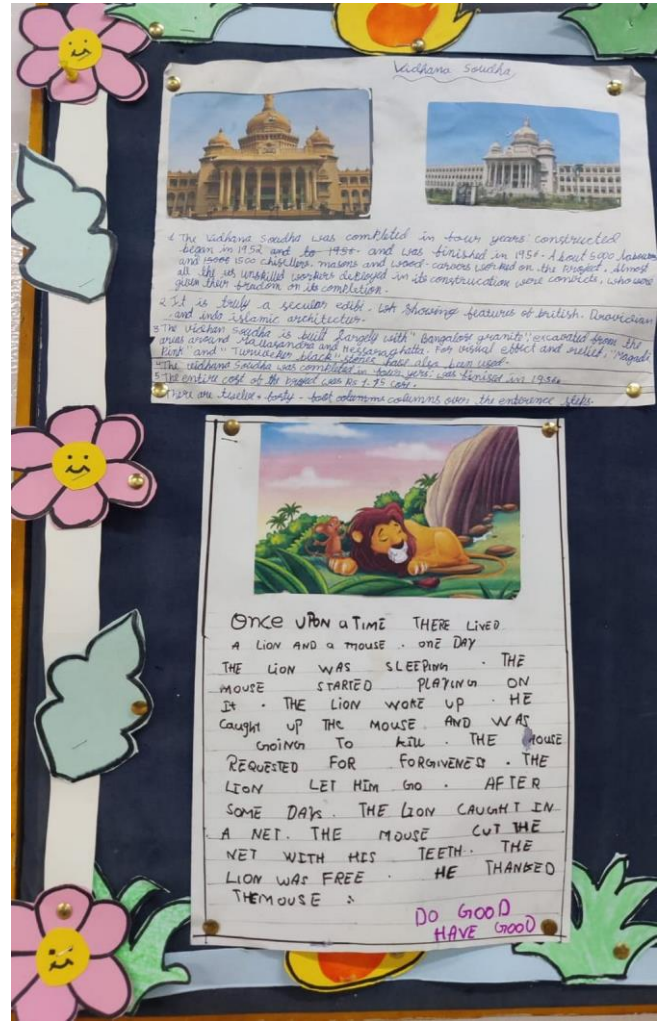 Vidhana Soudha
1 The Vidhana Soudha was completed in four years constructed
began in 1952 and to 1956 and was finished in 1956. About 5000 labourers
and 1500 chisellers, masons and wood-carvers worked on the project. Almost
all the unskilled workers deployed in its construction were convicts, who were
given their freedom on its completion.
2 It is truly a secular showing features of british. Dravidian
and indo islamic architectur.
3 The vidhan Soudha is built largely with "Bangalore granite", excavated from the
aries around Mallasandra and Hessaraghatta. For visual effect and relief, "Magadi
Pink" and "Turuvekere black" stones have also been used.
4 The vidhand Soudha was completed in four years. was finised in 1956
5 The entire cost of the project was Rs 1.75 core.
There are twelve - forty - foot columns over the enterence steps.
Once UPON a TIME THERE LIVED
A LION AND a MOUSE . ONE DAY
THE LION WAS SLEEPING . THE
MOUSE STARTED PLAYING ON
It . THE LION WOKE UP . HE
Caught UP THE MOUSE AND WAS
GOING TO KILL . THE MOUSE
REQUESTED FOR FORGIVENESS . THE
LION LET HIM GO . AFTER
SOME DAYS . THE LION CAUGHT IN
A NET. THE MOUSE CUT THE
NET WITH HIS TEETH. THE
LION WAS FREE . HE THANKED
THEMOUSE :
DO GOOD
HAVE GOOD